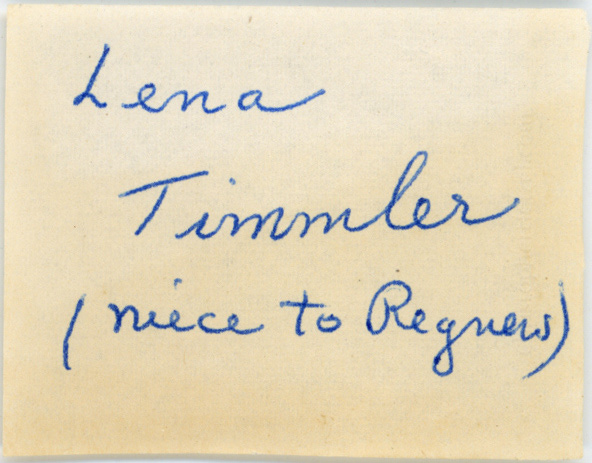 Lena
Timmler
(niece to Regnews)